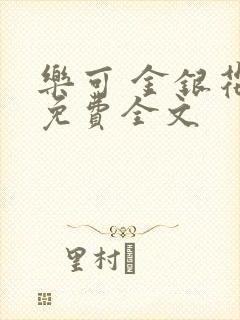 樂可 金銀花
免費全文
里村